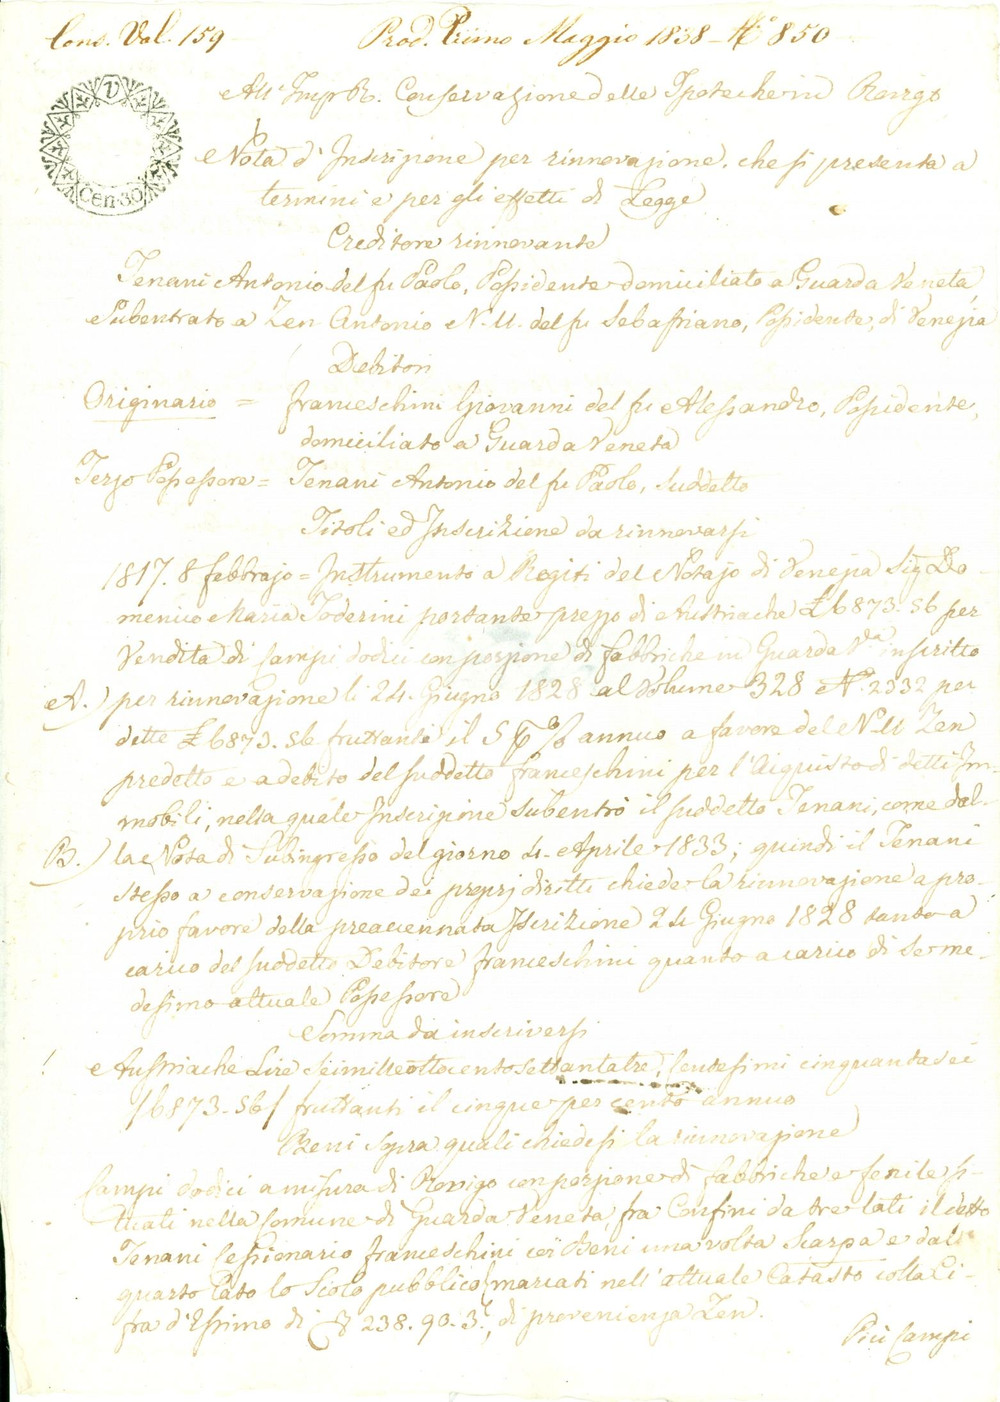 Cons. Vol. 159 Prod. Primo Maggio 1838 - N.° 850
All' Imp. R. Conservazione delle Ipoteche in Rovigo
V
CEN. 30
Nota d' Inscrizione per rinnovazione, che si presenta a
termini e per gli effetti di Legge
Creditore rinnovante
Tenani Antonio del fu Paolo, Possidente domiciliato a Guarda Veneta
Subentrato a Zen Antonio N. U. del fu Sebastiano, Possidente, di Venezia
Debitori
Originario = Franceschini Giovanni del fu Alessandro, Possidente,
domiciliato a Guarda Veneta
Terzo Possessore = Tenani Antonio del fu Paolo, suddetto
Titoli ed Inscrizione da rinnovarsi
1817. 8 febbrajo = Instrumento a Rogiti del Notajo di Venezia Sig. Do-
menico Maria Toderini portante prezzo di Austriache £ 6873.56 per
Vendita di Campi dodici con porzione di fabbriche in Guarda V.ta inscritto
A.) per rinnovazione li 24. Giugno 1828 al Volume 328 N.° 2332 per
dette £ 6873.56 fruttanti il 5 % annuo a favore del N. U. Zen
predetto e a debito del suddetto Franceschini per l'Acquisto di detti Im-
mobili, nella quale Inscrizione subentrò il suddetto Tenani, come dal-
B.) la Nota di Subingresso del giorno 4. Aprile 1833; quindi il Tenani
stesso a conservazione dei proprj diritti chiede la rinnovazione a pro-
prio favore della preaccennata Iscrizione 24 Giugno 1828 tanto a
carico del suddetto Debitore Franceschini quanto a carico di se me-
desimo attuale Possessore
Somma da inscriversi
Austriache Lire Seimilleottocentosettantatre, Centesimi cinquantasei
/6873.56/ fruttanti il cinque per cento annuo
Beni sopra quali chiedesi la rinnovazione
Campi dodici a misura di Rovigo con porzione di fabbriche e fenile si-
tuati nella Comune di Guarda Veneta, fra Confini da tre lati il detto
Tenani Cessionario Franceschini coi Beni una volta Scarpa e dal
quarto lato lo Scolo pubblico marcati nell' attuale Catasto colla Ci-
fra d'Estimo di 238.90.3, di provenienza Zen.
Più Campi